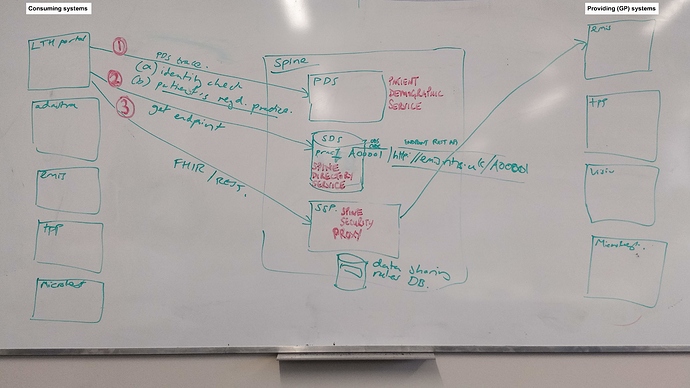 Consuming systems
Providing (GP) systems
LTH portal
adastra
EMIS
TPP
Microtest
1
PDS trace.
(a) identity check
(b) patient's regd. practice.
2
get endpoint
3
FHIR / REST.
Spine
PDS
PATIENT
DEMOGRAPHIC
SERVICE
SDS
pract
A00001
SPINE
DIRECTORY
SERVICE
SSP.
SPINE
SECURITY
PROXY
data sharing
rules DB.
EMIS
TPP
Vision
Microtest.
?